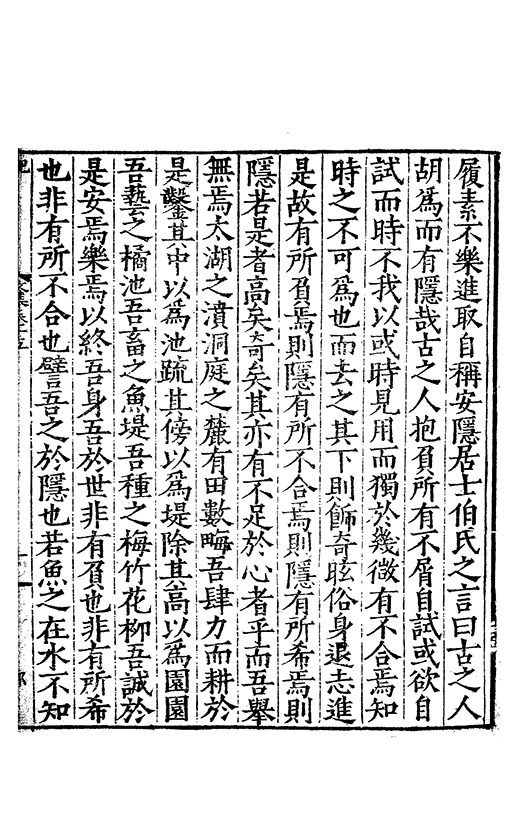 履素不樂進取自稱安隱居士伯氏之言曰古之人
胡爲而有隱哉古之人抱負所有不屑自試或欲自
試而時不我以或時見用而獨於幾微有不合焉知
時之不可爲也而去之其下則飾奇眩俗身退志進
是故有所負焉則隱有所不合焉則隱有所希焉則
隱若是者高矣奇矣其亦有不足於心者乎而吾舉
無焉太湖之濆洞庭之麓有田數畮吾肆力而耕於
是鑿其中以爲池疏其傍以爲堤除其高以爲園園
吾藝之橘池吾畜之魚堤吾種之梅竹花柳吾誠於
是安焉樂焉以終吾身吾於世非有負也非有所希
也非有所不合也譬吾之於隱也若魚之在水不知